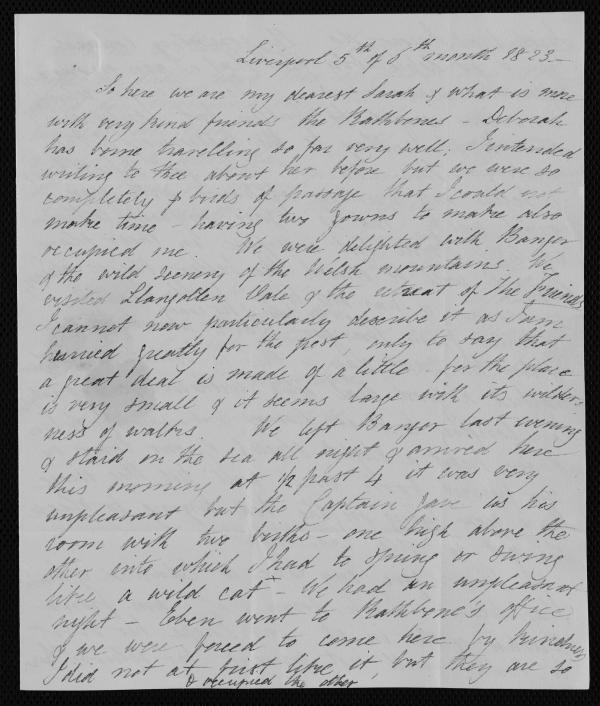 Liverpool 5th of 6th month 1823 -
So here we are my dearest Sarah & what is more
with very kind friends the Rathbones - Deborah
has borne travelling so far very well. I intended
writing to thee about her before but we were so
completely birds of passage that I could not
make time - having two gowns to make also
occupied me. We were delighted with Bangor
& the wild scenery of the Welsh mountains. We
visited Llangollen Vale & the retreat of The Friends
I cannot now particularly describe it as I am
hurried greatly for the post, only to say that
a great deal is made of a little. for the place
is very small & it seems large with its wilder-
ness of walks. We left Bangor last evening
& staid on the sea all night & arrived here
this morning at 1/2 past 4 it was very
unpleasant but the Captain gave us his
room with two births - one high above the
other into which I had to spring or swing
like a wild cat - We had an unpleasant
night - Eben went to Rathbone's office
& we were forced to come here by kindness
I did not at first like it, but they are so
& occupied the other